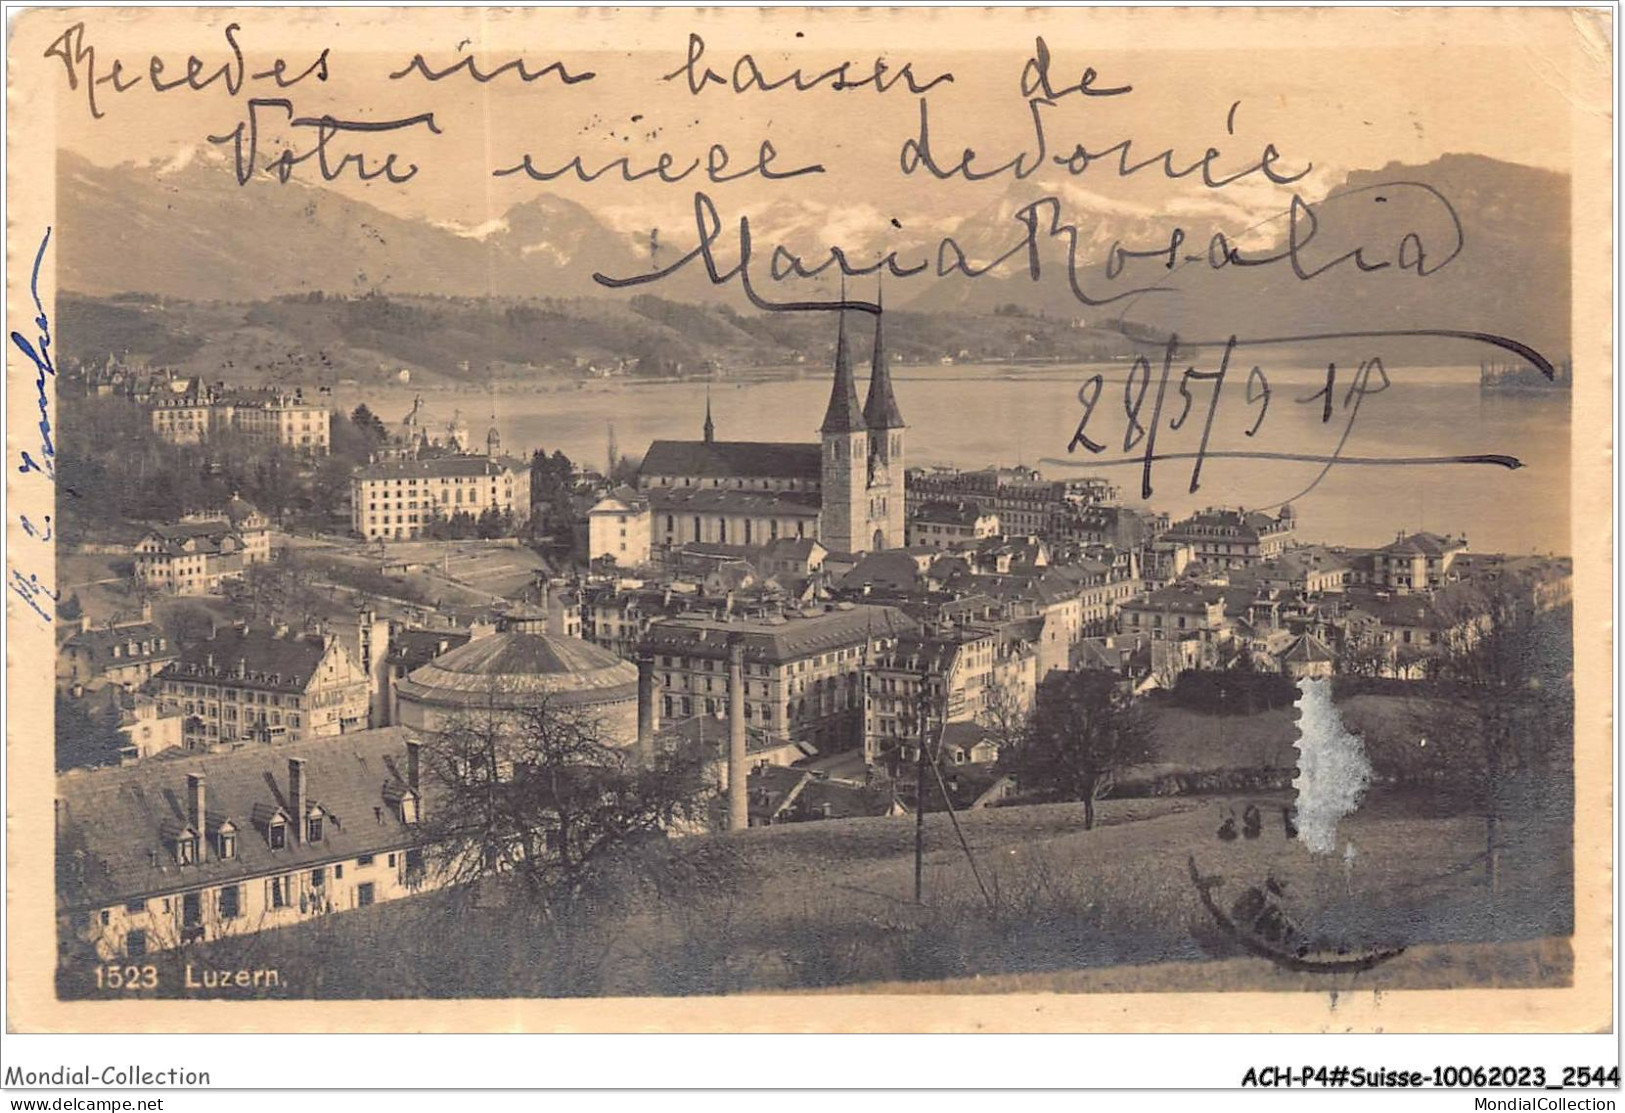 Recedes un baiser de
Votre niece devonée
Maria Rosalia
28/5/919
KLAUS
1523 Luzern.
Mondial-Collection
ACH-P4#Suisse-10062023_2544
delcampe.net
MondialCollection